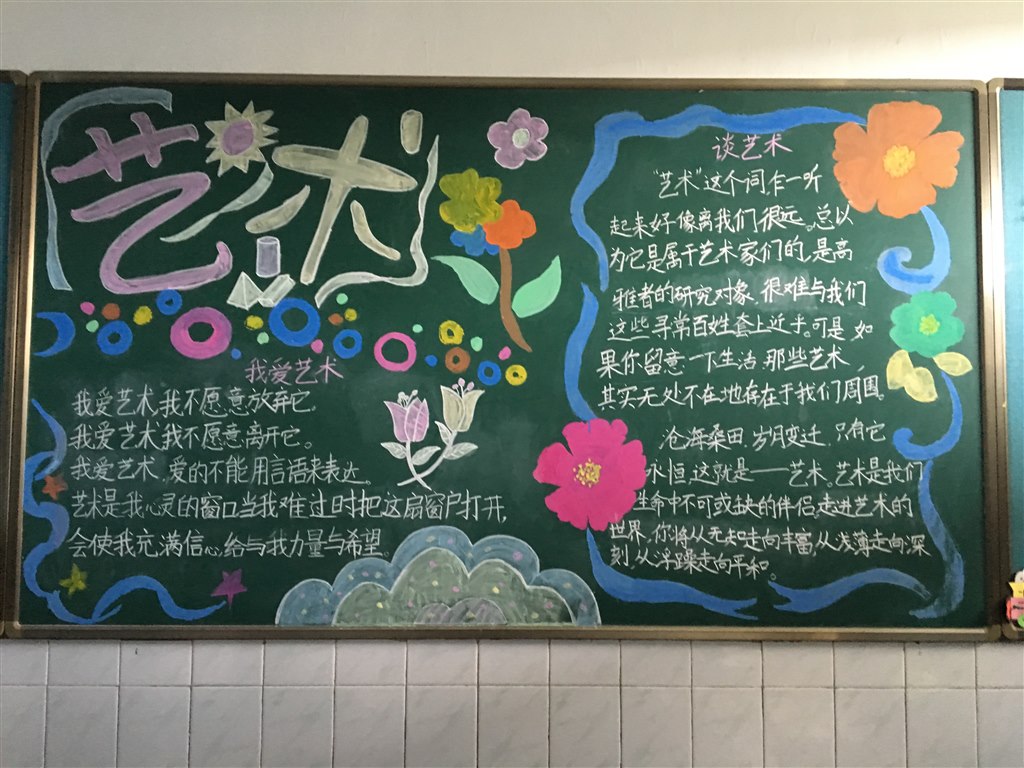 艺术
我爱艺术
我爱艺术,我不愿意放弃它。
我爱艺术,我不愿意离开它。
我爱艺术,爱的不能用言语来表达。
艺术是我心灵的窗口当我难过时把这扇窗户打开,
会使我充满信心,给与我力量与希望。
谈艺术
“艺术”这个词乍一听
起来好像离我们很远。总以
为它是属于艺术家们的,是高
雅者的研究对象,很难与我们
这些寻常百姓套上近乎。可是,如
果你留意一下生活,那些艺术,
其实无处不在地存在于我们周围。
沧海桑田,岁月变迁,只有它
永恒,这就是——艺术。艺术是我们
生命中不可或缺的伴侣,走进艺术的
世界,你将从无知走向丰富,从浅薄走向深
刻,从浮躁走向平和。